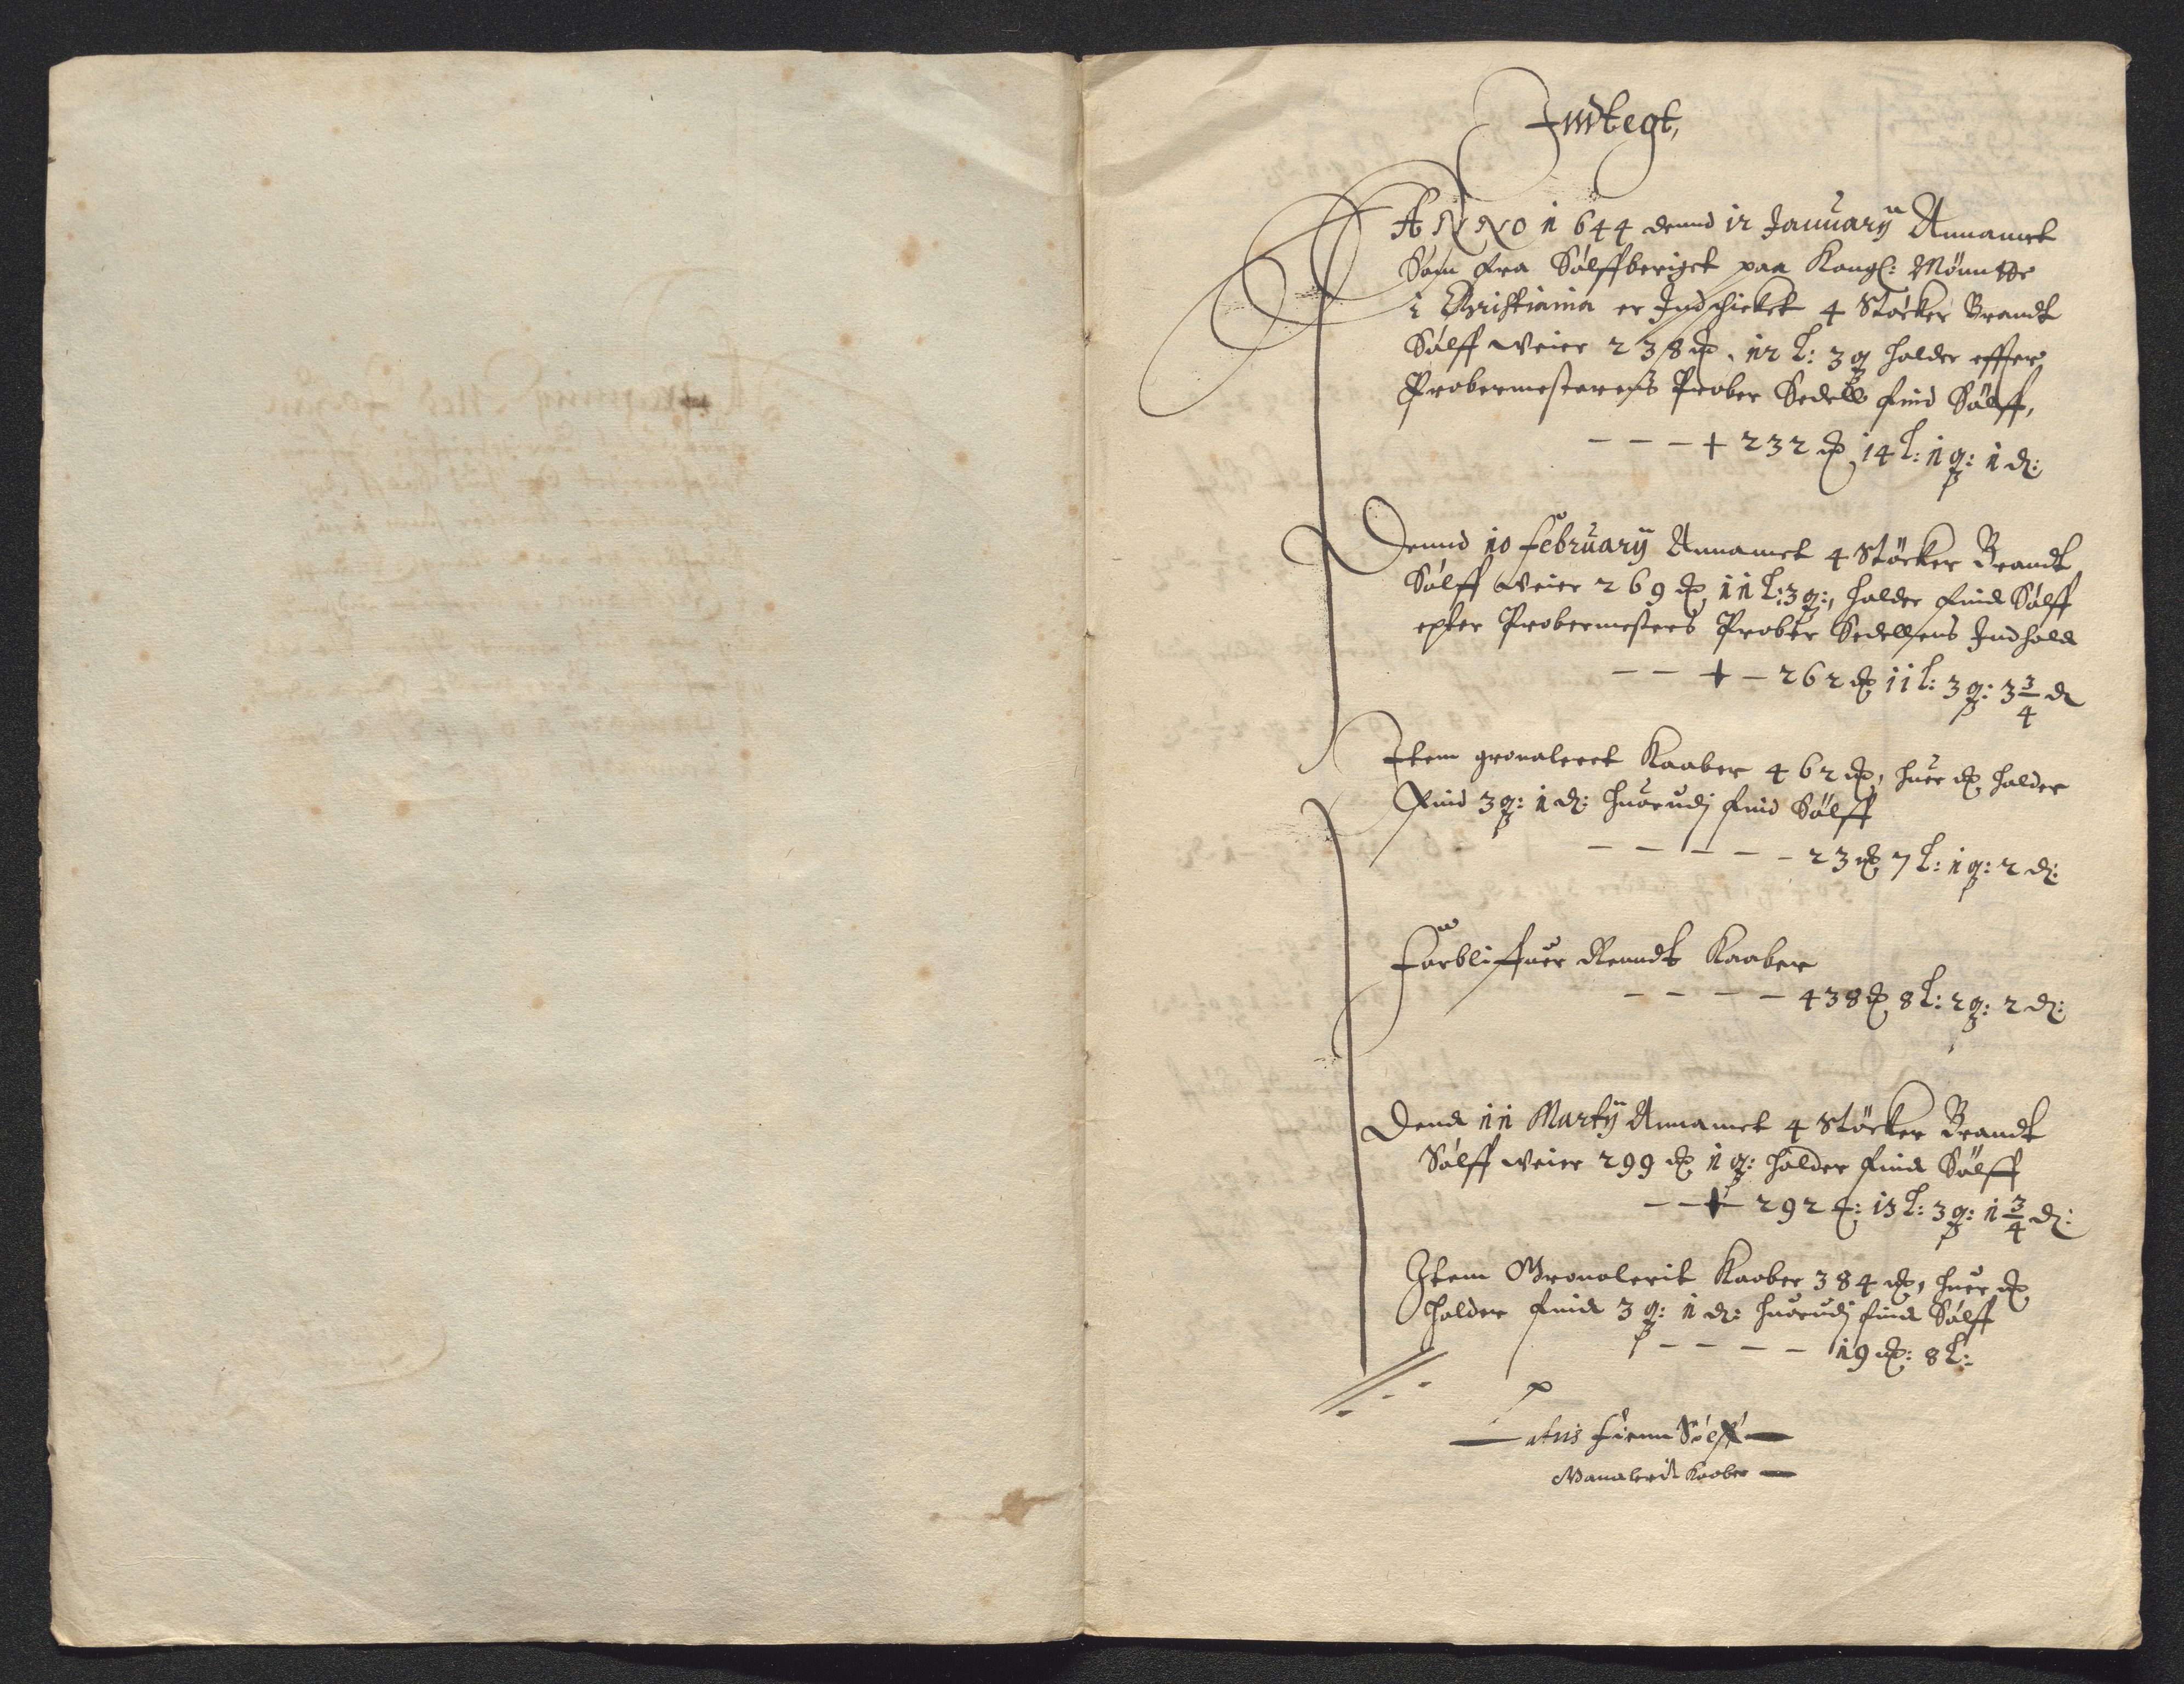 Indtegt,
ANNO 1644 dennd 12 January Annamet
Som fra Sølffberiget paa Kongl: Mønntte
i Christiania er Indschicket 4 Støcker Brandt
Sølff weier 238 ℔ 12 L: 3 q halder effter
Probermesterens Prober Sedell find Sølff,
— — — + 232 ℔ 14 L: 1 q: 1 d:
Dennd 10 February Annamet 4 Støcker Brandt
Sølff weier 269 ℔ 11 L: 3 q:, halder find Sølff
epter Probermesters Prober Sedellens Indhold
— — + — 262 ℔ 11 L: 3 q: 3 3/4 d
Item granaleret Kaaber 462 ℔, huer ℔ halder
find 3 q: 1 d: huorudj find Sølff
— — — — — 23 ℔ 7 L: 1 q: 2 d:
Forbliffuer Kaaber
— — — — 438 ℔ 8 L: 2 q: 2 d:
Dend 11 Marty Annamet 4 Støcker Brandt
Sølff weier 299 ℔ 1 q: halder find Sølff
— — + — 292 ℔: 13 L: 3 q: 1 3/4 d:
Item Granalerit Kaaber 384 ℔, huer ℔
halder find 3 q: 1 d: huorudj find Sølff
— — — — 19 ℔: 8 L:
Latus fienn Sølff —
Granalerit Kaaber —